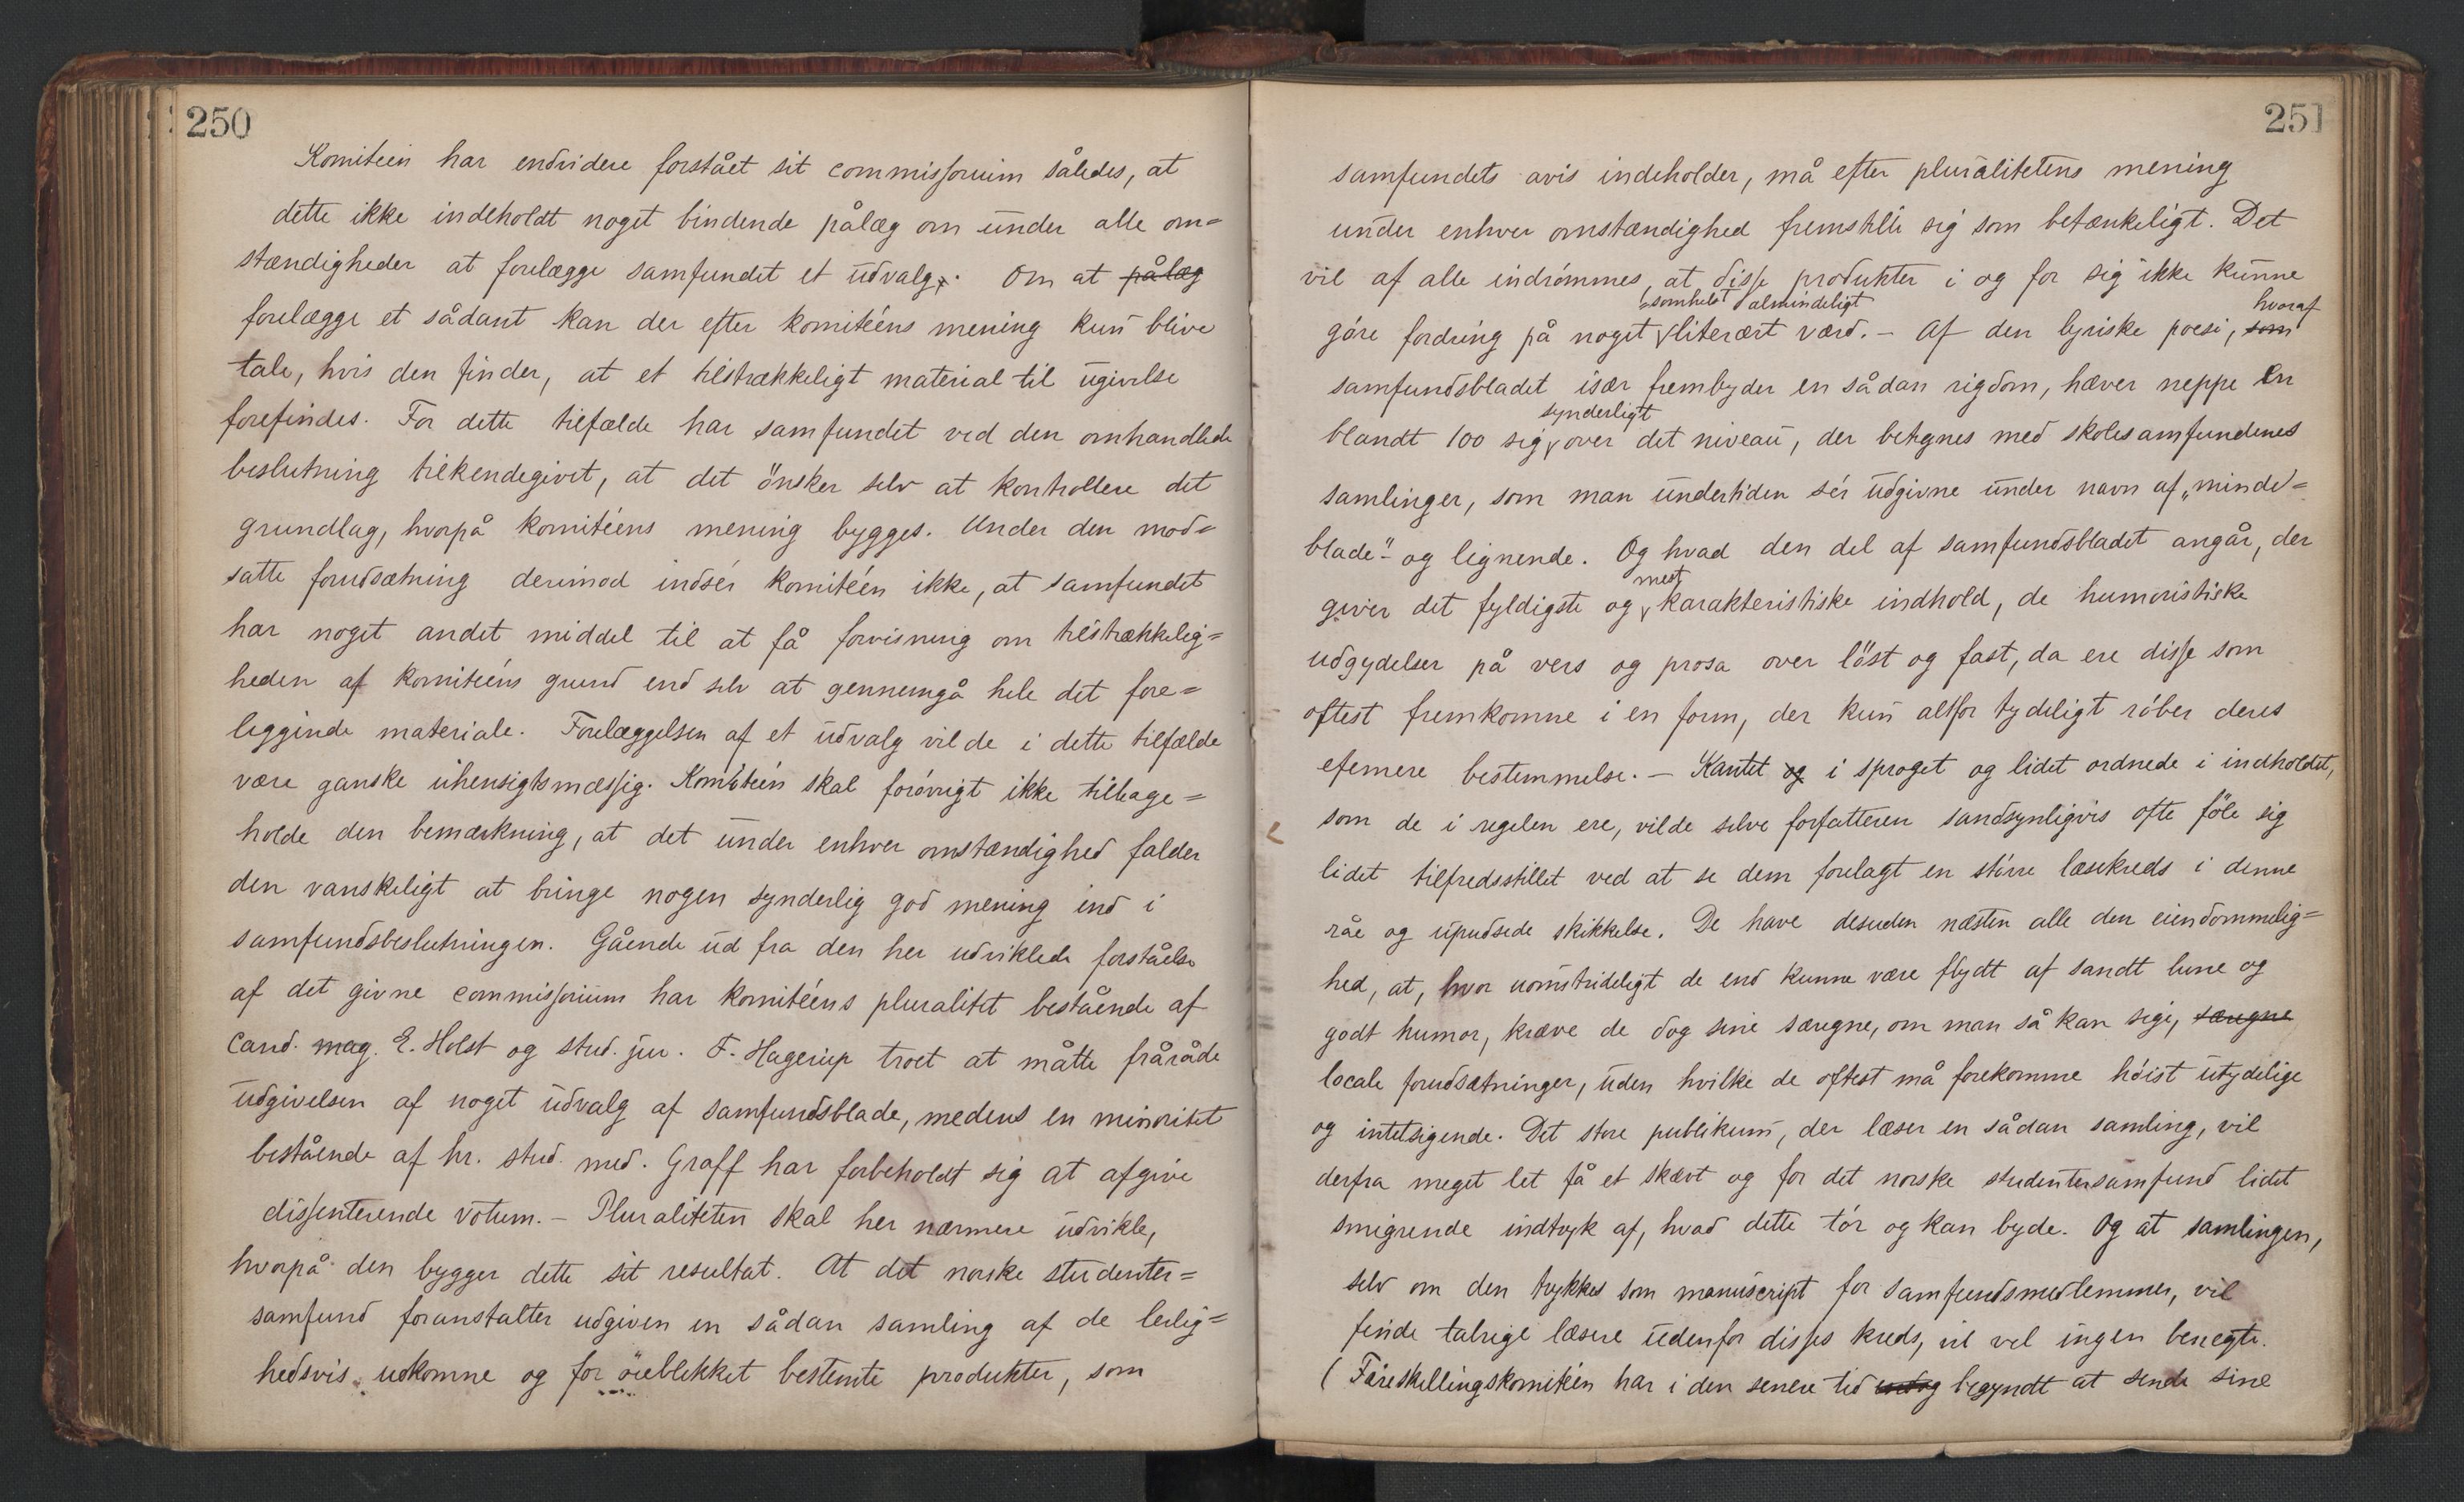 250
Komiteen har endvidere forstået sit commissorium således, at
dette ikke indeholdt noget bindende pålæg om under alle om=
stændigheder at forelægge samfundet et udvalg. Om at pålæg
forelægge et sådant kan der efter komitéens mening kun blive
tale, hvis den finder, at et tilstrækkeligt material til ugivelse
forefindes. For dette tilfælde har samfundet ved den omhandlede
beslutning tilkendegivet, at det önsker selv at kontrollere det
grundlag, hvorpå komitéens mening bygges. Under den mod=
satte forudsætning derimod indsér komitéén ikke, at samfundet
har noget andet middel til at få forvisning om tilstrækkelig=
heden af komitéens grund end selv at gennemgå hele det fore=
liggende materiale. Forelæggelsen af et udvalg vilde i dette tilfælde
være ganske uhensigtsmæssig. Komiteén skal foróvrigt ikke tilbage=
holde den bemærkning, at det under enhver omstændighed falder
den vanskeligt at bringe nogen synderlig god mening ind i
samfundsbeslutningen. Gående ud fra den her udviklede forståelse
af det givne commissorium har komitéens pluralitet bestående af
cand. mag. E. Holst og stud. jur. F. Hagerup troet at måtte fråråde
udgivelsen af noget udvalg af samfundsblade, medens en minoritet
bestående af hr. stud. med. Graff har forbeholdt sig at afgive
dissenterende votum. – Pluraliteten skal her nærmere udvikle,
hvorpå den bygger dette sit resultat. At det norske studenter=
samfund foranstalter udgiven en sådan samling af de leilig=
hedsvis udkomne og for öieblikket bestemte produkter, som
251
samfundets avis indeholder, må efter pluralitetens mening
under enhver omstændighed fremstille sig som betænkeligt. Det
vil af alle indrómmes, at disse produkter i og for sig ikke kunne
somhelst almindeligt hvoraf
góre fordring på noget literært værd. – Af den lyriske poesi, som
samfundsbladet især frembyder en sådan rigdom, hæver neppe én
synderligt
blandt 100 sig over det niveau, der betegnes med skolesamfundenes
samlinger, som man undertiden sér udgivne under navn af „minde=
blade" og lignende. Og hvad den del af samfundsbladet angår, der
mest
giver det fyldigste og karakteristiske indhold, de humoristiske
udgydelser på vers og prosa over löst og fast, da ere disse som
oftest fremkomne i en form, der kun altfor tydeligt róber deres
efemere bestemmelse. – Kantet og i sproget og lidet ordnede i indholdet,
som de i regelen ere, vilde selve forfatteren sandsynligvis ofte föle sig
lidet tilfredsstillet ved at se dem forelagt en större læsekreds i denne
råe og upudsede skikkelse. De have desuden næsten alle den eiendommelig=
hed, at, hvor uomstrideligt de end kunne være flydt af sandt lune og
godt humor, kræve de dog sine særegne, om man så kan sige, særegne
locale forudsætninger, uden hvilke de oftest må forekomme hóist utydelige
og intetsigende. Det store publikum, der læser en sådan samling, vil
derfra meget let få et skævt og for det norske studentersamfund lidet
smigrende indtryk af, hvad dette tór og kan byde. Og at samlingen,
selv om den trykkes som manuscript for samfundsmedlemmer, vil
finde talrige læsere udenfor disses kreds, vil vel ingen benegte.
(Fireskillingskomitéen har i den senere tid endog begyndt at sende sine